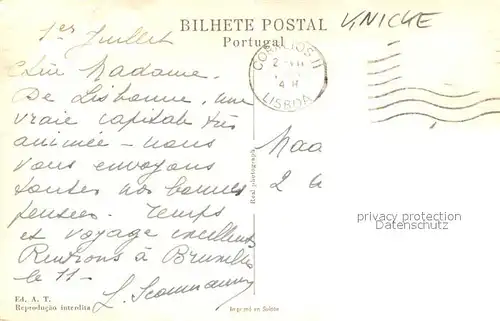 BILHETE POSTAL
Portugal
KNICKE
1er Juillet
Chère Madame.
De Lisbonne, une
vraie capitale très
animée – nous
vous envoyons
toutes nos bonnes
pensées. Temps
et voyage excellents
Rentrons à Bruxelles
le 11 –
L.
CORREIOS II
2-VII
4 H
LISBOA
Real photograph
Maa
2 a
privacy protection
www.oldthing.de
Ed. A. T.
Reprodução interdita
Imprimé en Suisse